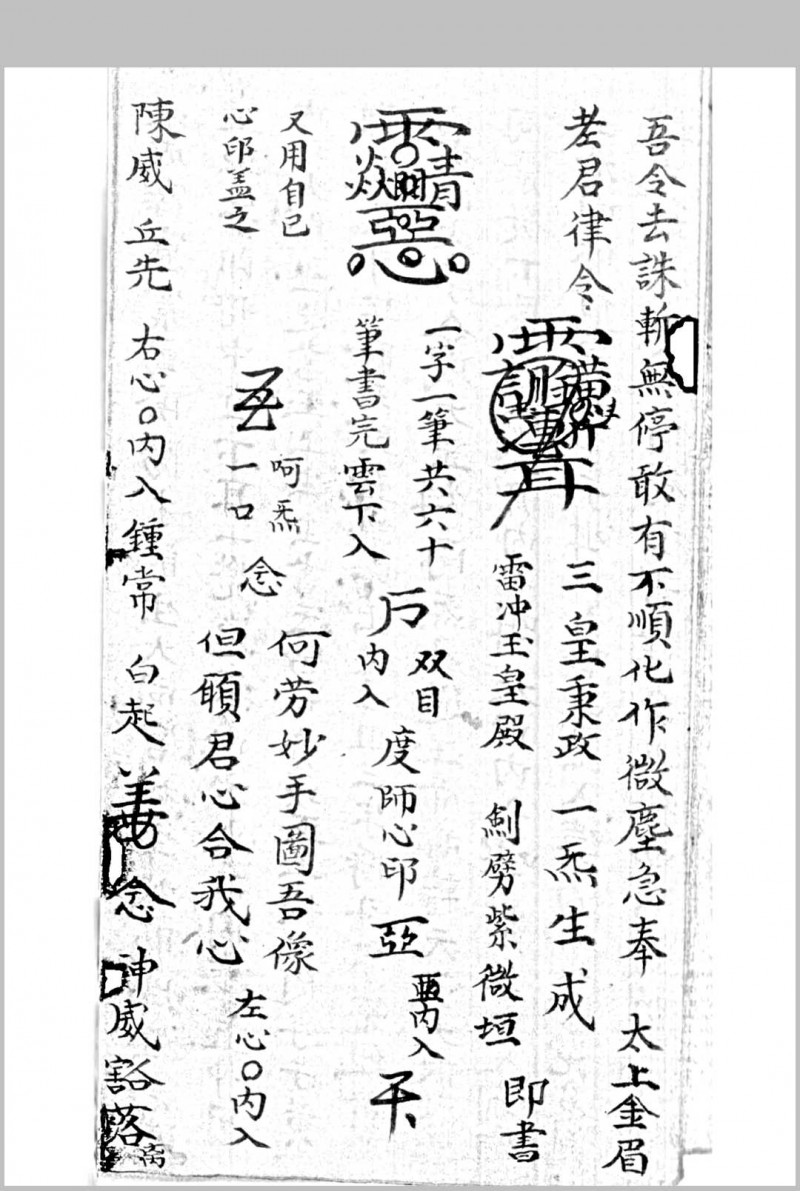 吾令去誅斬無停敢有不順化作微塵急奉 太上金眉
老君律令 三皇秉政一炁生成
雷冲玉皇殿 劍劈紫微垣 即書
一字一筆共六十 双目 亞內入
筆書完雲下入 內入 度師心印
又用自己 呵炁 何劳妙手圖吾像
心印盖之 一口 念 但願君心合我心 左心〇內入
陳威 丘先 右心〇內入鍾常 白起 念 神威豁落